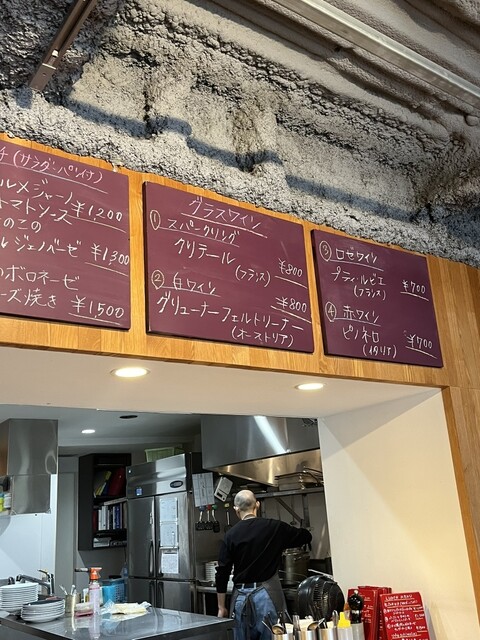 チ(サラダ・パン付)
ルメジャーノ
トマトソース ¥1,200
のこの
ルジェノベーゼ ¥1,300
のボロネーゼ
ーズ焼き ¥1,500
グラスワイン
① スパークリング
クリテール
(フランス) ¥800
② 白ワイン ¥800
グリューナーフェルトリーナー
(オーストリア)
③ ロゼワイン
プティ・ルビエ ¥700
(フランス)
④ 赤ワイン
ピノネロ ¥700
(イタリア)
LUNCH MENU